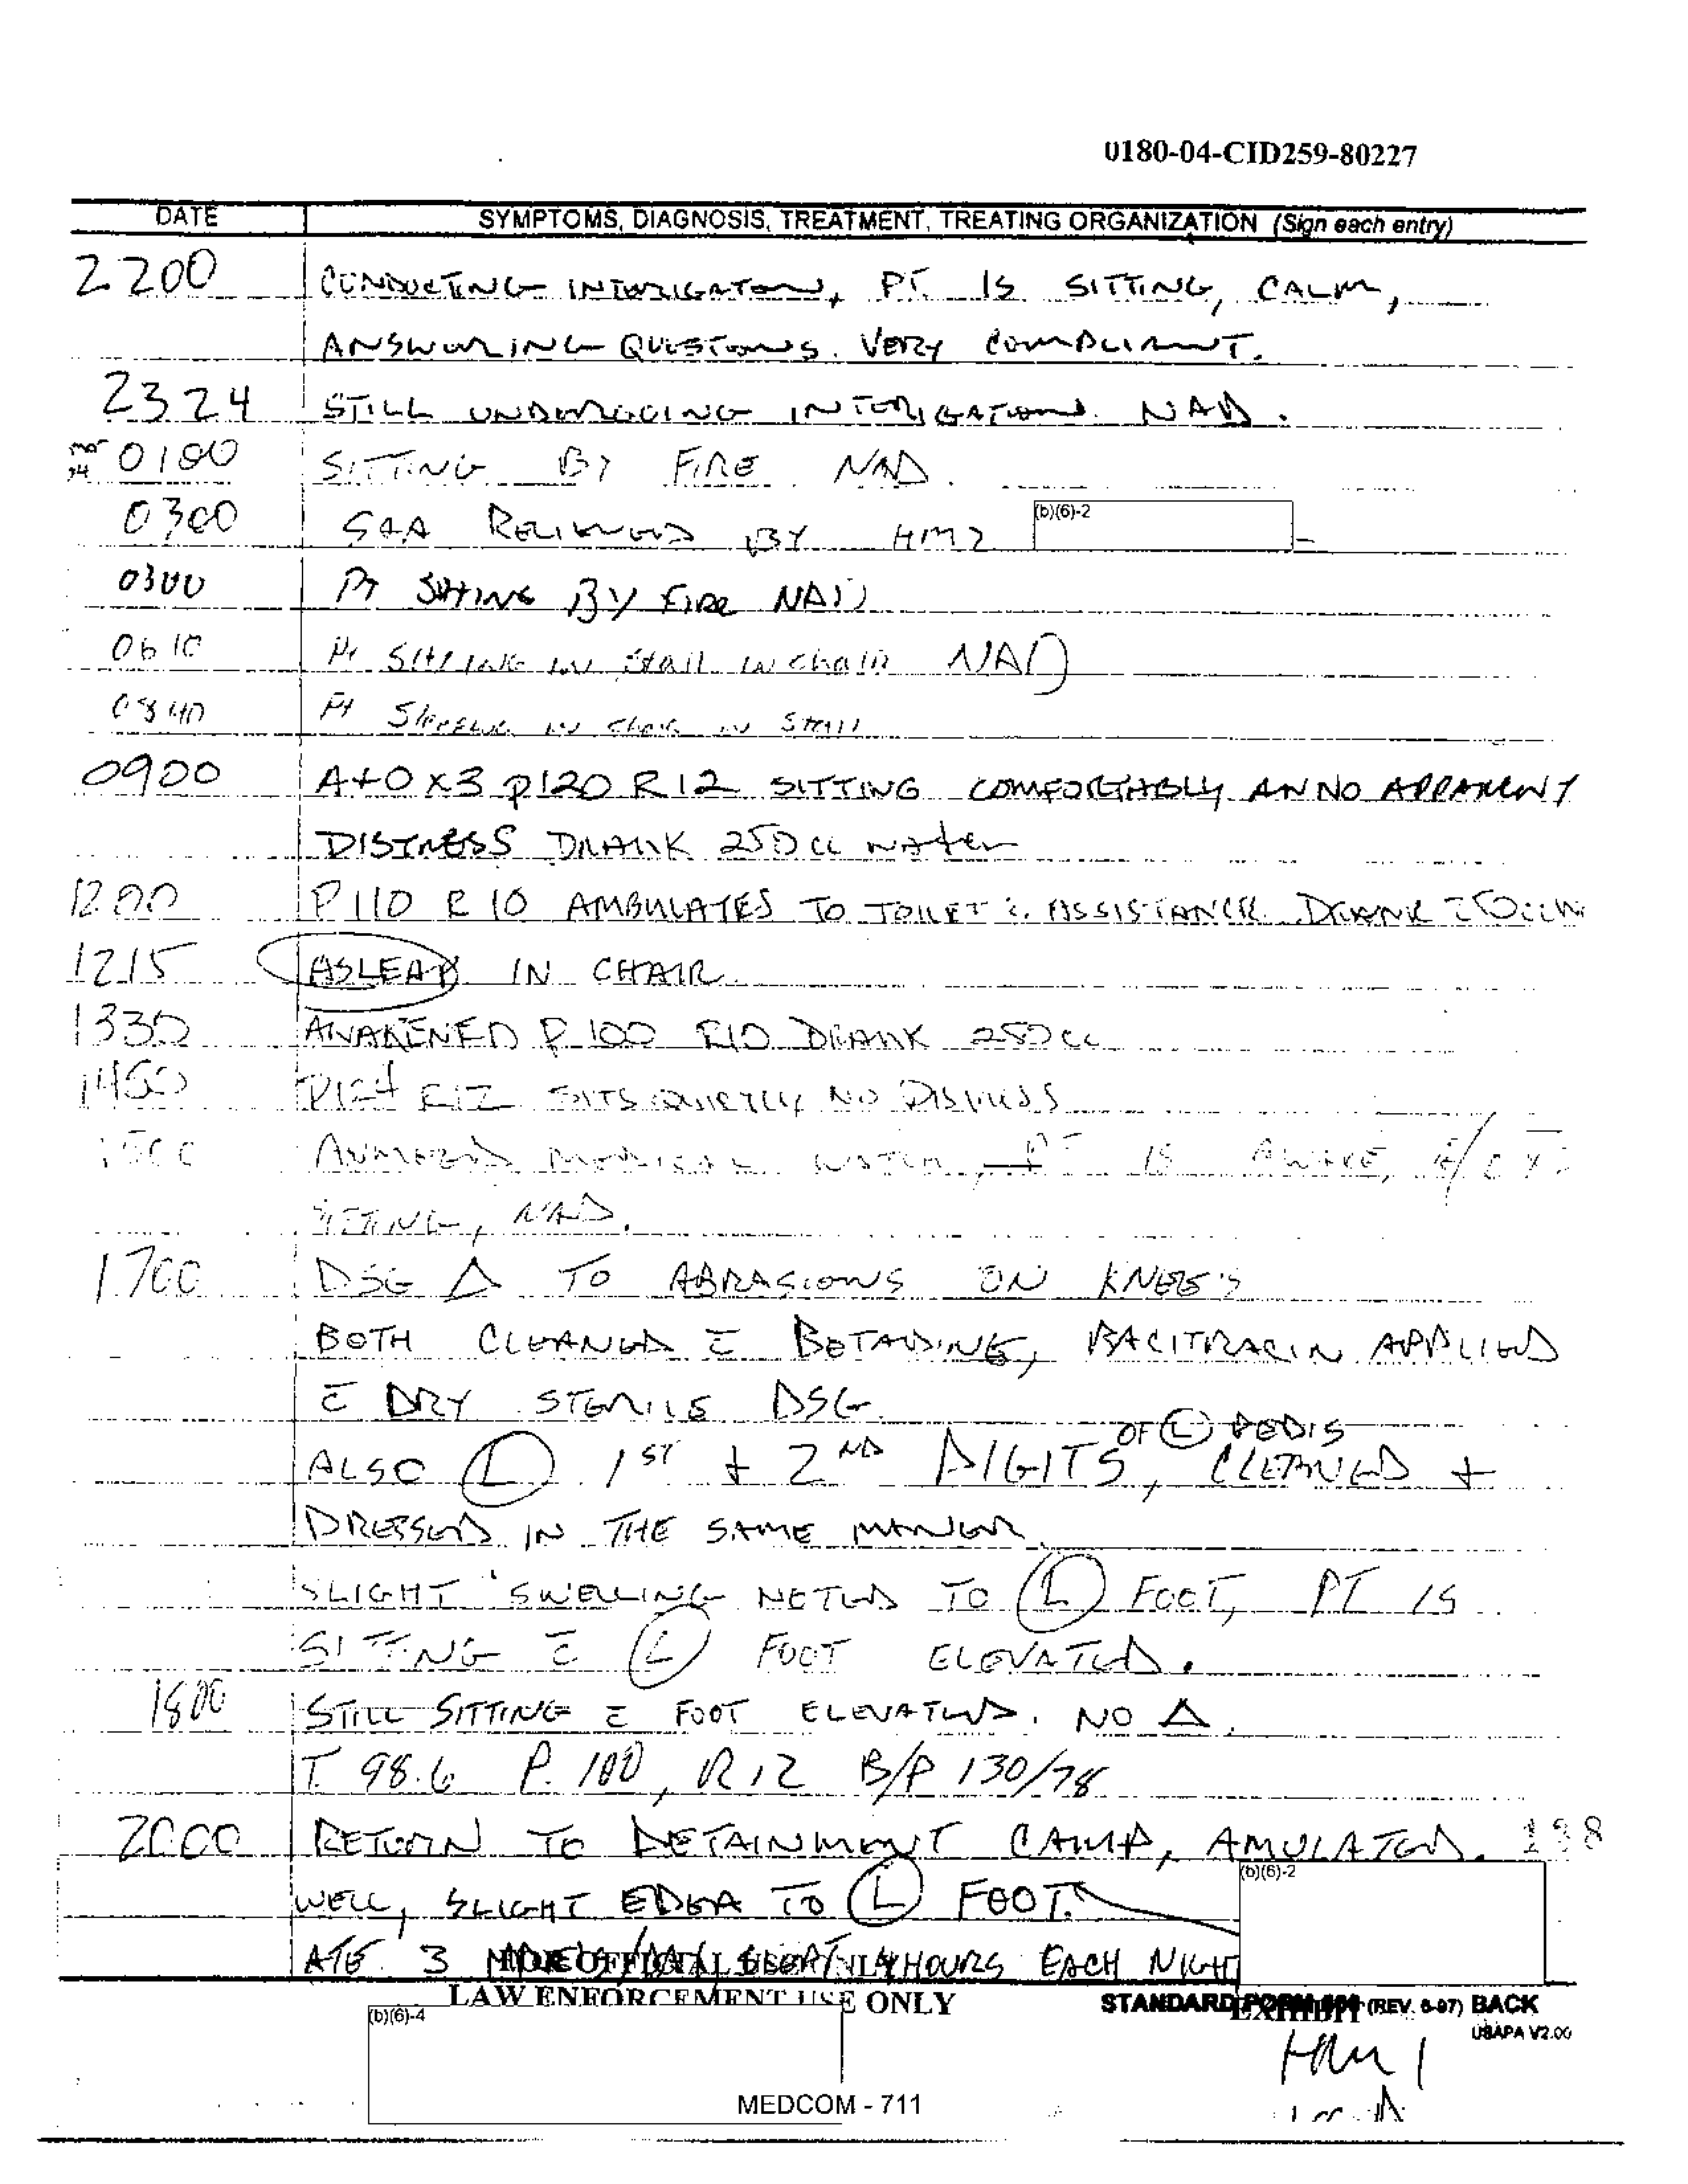 0180-04-CID259-80227
DATE SYMPTOMS, DIAGNOSIS, TREATMENT, TREATING ORGANIZATION (Sign each entry)
2200 CONDUCTING INTERIGATION, PT. IS SITTING, CALM,
ANSWERING QUESTIONS. VERY COMPLIANT.
2324 STILL UNDERGOING INTERIGATION. NAD.
0100 SITTING BY FIRE NAD.
0300 RELIEVED BY HM2 (b)(6)-2
0300 PT SITTING BY FIRE NAD
0610 Pt SITTING IN Stall IN chair NAD
0840 Pt Sleeping IN chair IN Stall
0900 A+O X3 P120 R12 SITTING COMFORTABLY AN NO APPARENT
DISTRESS DRANK 250 cc water
1200 P110 R10 AMBULATES TO TOILET c̄ ASSISTANCE DRANK
1215 ASLEAP IN CHAIR
1330 AWAKENED P100 R10 DRANK 250cc
1450 R12 SITS QUIETLY NO DISTRESS
1500 MEDICAL WATCH, PT IS AWAKE,
SITTING, NAD.
1700 DSG Δ TO ABRASIONS ON KNEE'S
BOTH CLEANED c̄ BETADINE, BACITRACIN APPLIED
c̄ DRY STERILE DSG.
OF Ⓛ PEDIS
ALSO Ⓛ 1ST + 2ND DIGITS, CLEANED +
DRESSED IN THE SAME MANER
SLIGHT SWELLING NOTED TO Ⓛ FOOT, PT IS
SITTING c̄ Ⓛ FOOT ELEVATED.
1800 STILL SITTING c̄ FOOT ELEVATED. NO Δ.
T. 98.6 P. 100, R12 B/P 130/78
2000 RETURN TO DETAINMENT CAMP, AMULATED. 138
WELL, SLIGHT EDEMA TO Ⓛ FOOT. (b)(6)-2
ATE 3 HOURS EACH NIGHT
LAW ENFORCEMENT USE ONLY STANDARD FORM (REV. 6-97) BACK
EXHIBIT
(b)(6)-4 USAPA V2.00
HM1
MEDCOM - 711